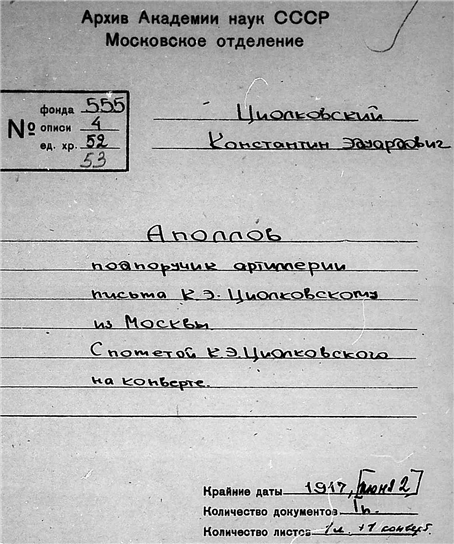 Архив Академии наук СССР
Московское отделение
№
фонда 555
описи 4
ед. хр. 52
53
Циолковский
Константин Эдуардович
Аполлов
подпоручик артиллерии
письма К.Э. Циолковскому
из Москвы
С пометой К.Э. Циолковского
на конверте.
Крайние даты 1917, [июня 2]
Количество документов 1п.
Количество листов 1л. +1 конверт.